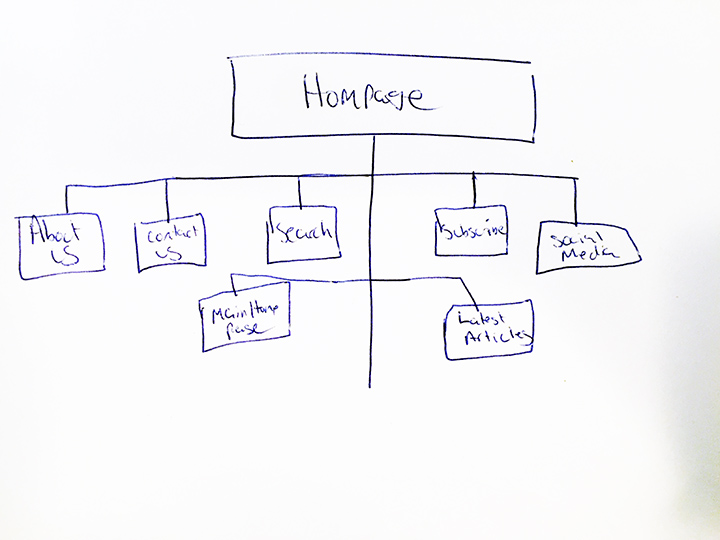 Hompage
About
US
Contact
US
Search
Subscribe
Social
Media
Main Home
Page
Latest
Articles